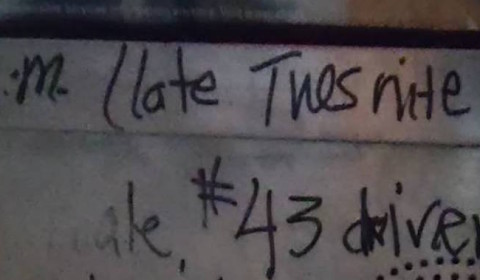 :m. (late Tues nite
ale, #43 driver